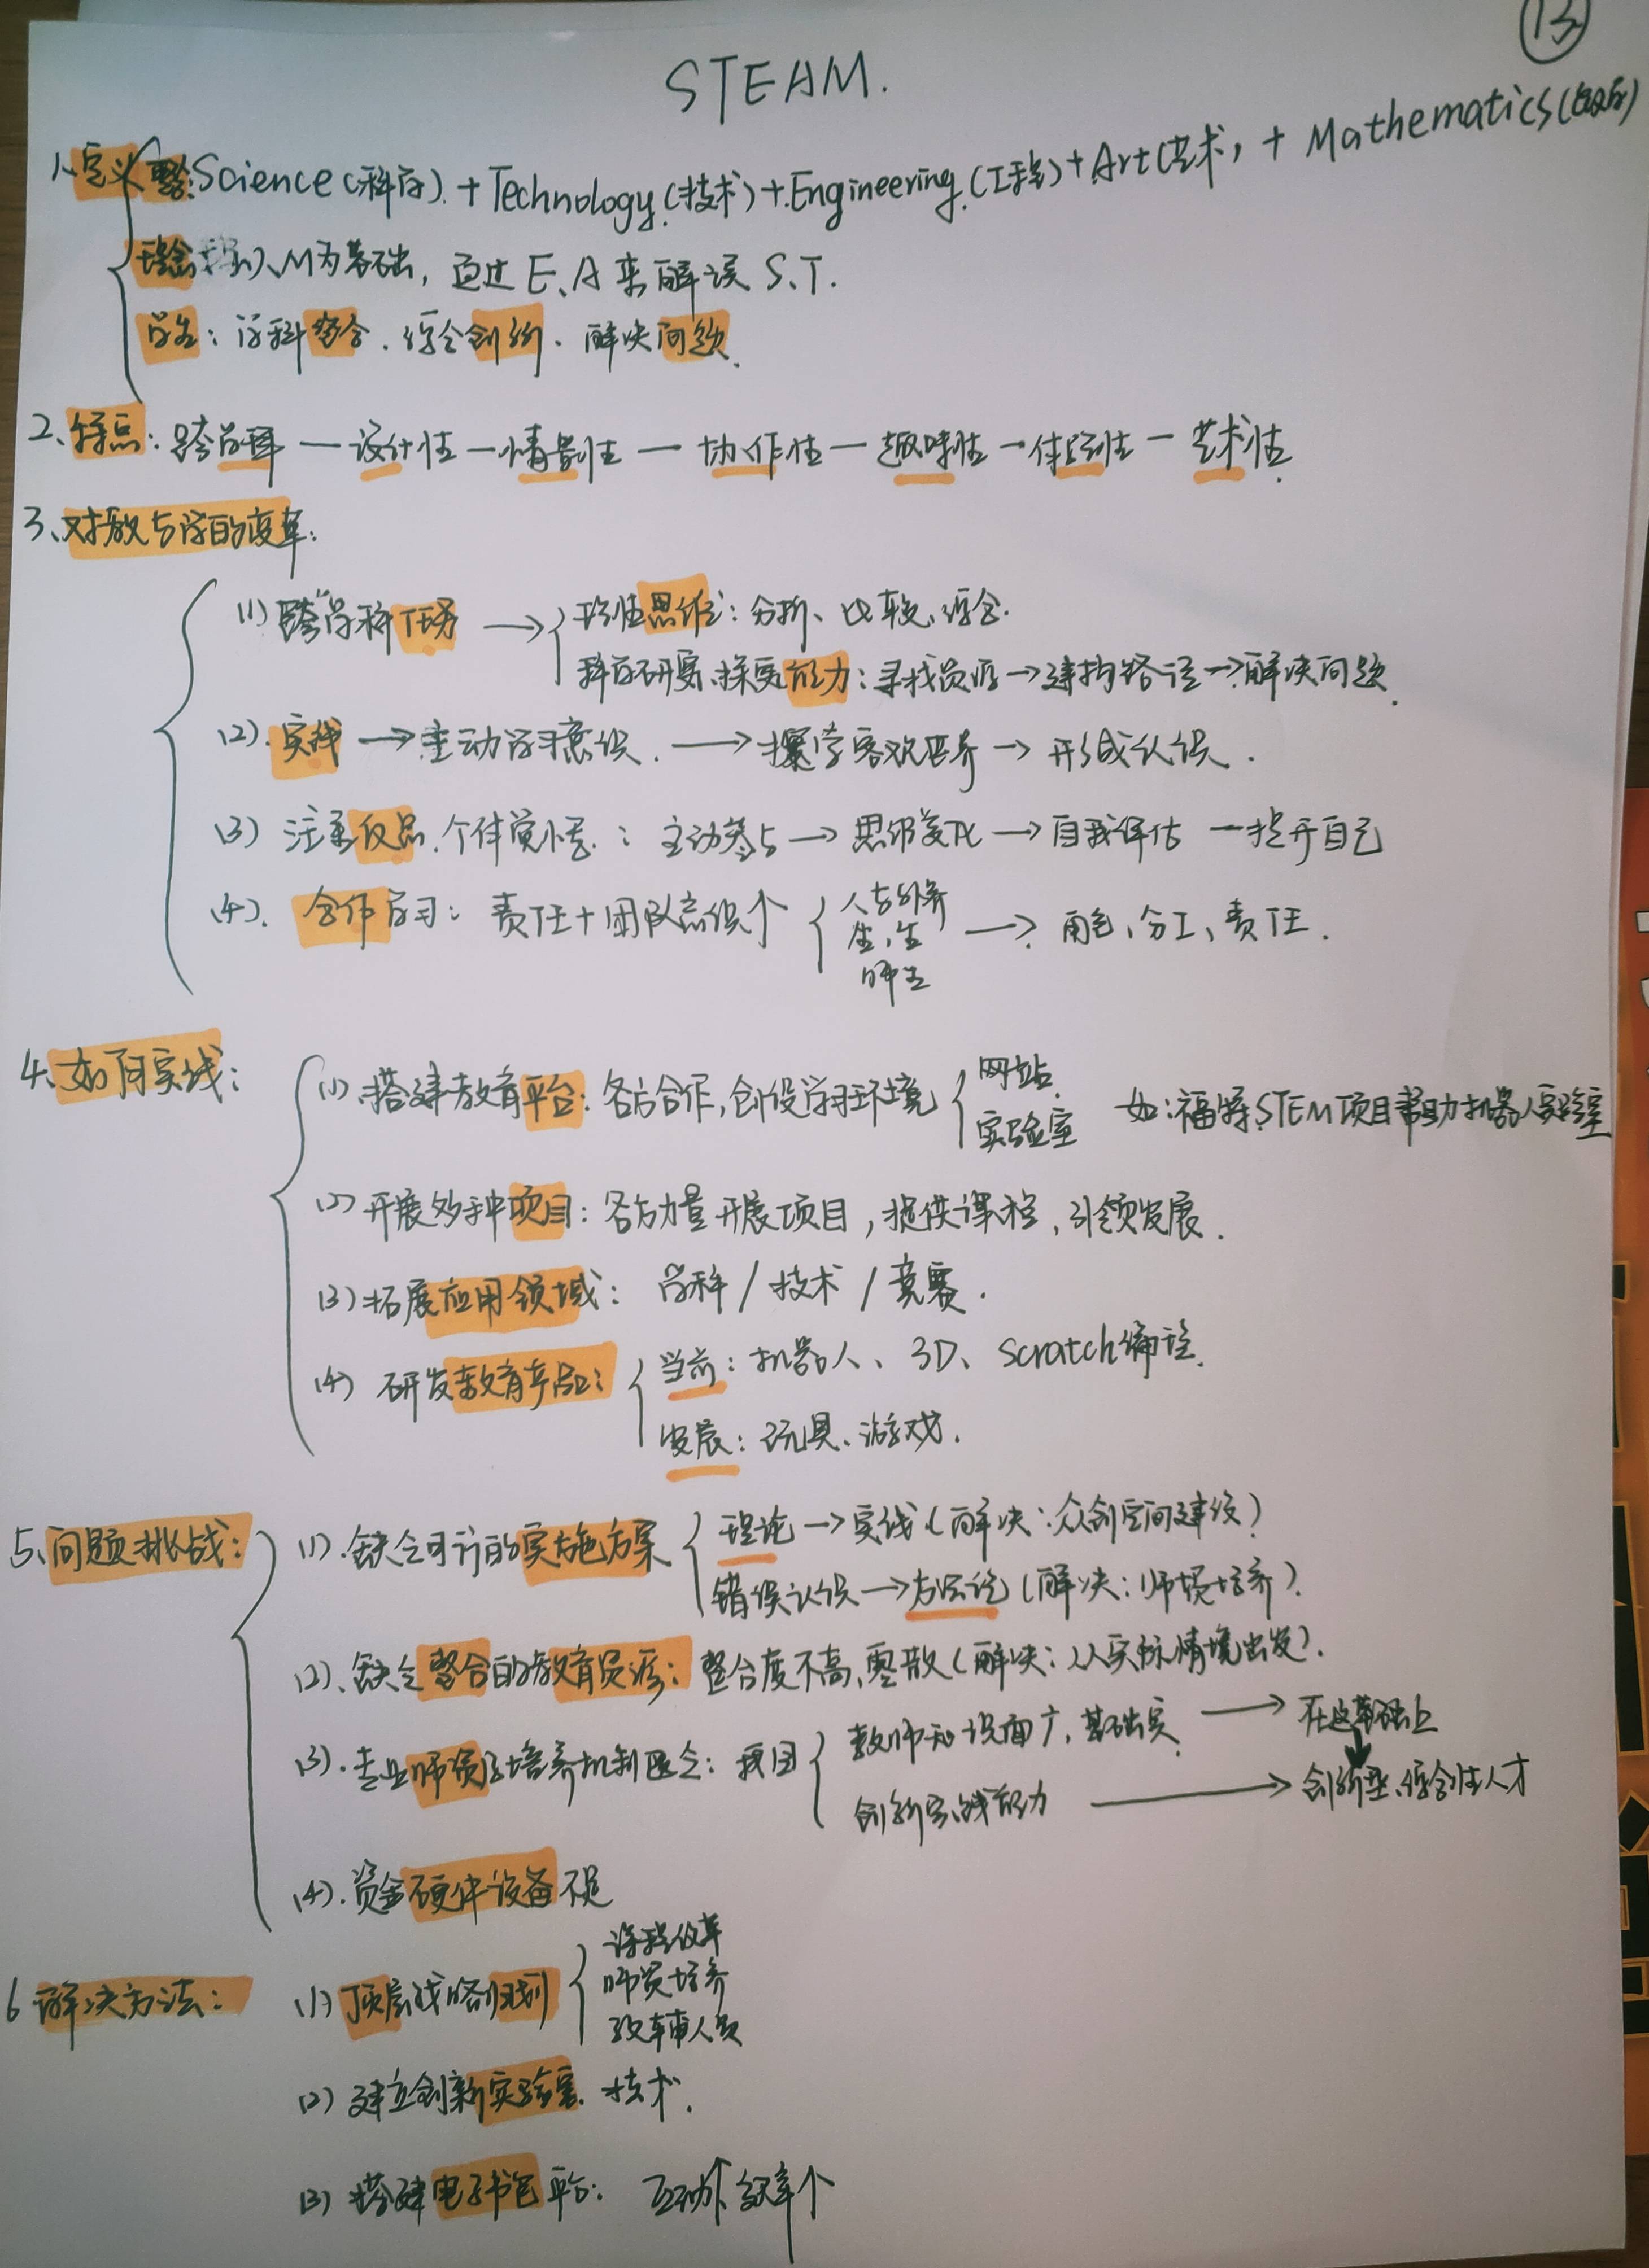 13
STEAM.
1、定义 整合:Science(科学)+Technology(技术)+Engineering(工程)+Art(艺术)+Mathematics(数学)
理念 M为基础，通过E、A来解读S、T.
学生：学科整合、综合创新、解决问题.
2、特点：跨学科—设计性—情景性—协作性—趣味性—体验性—艺术性.
3、对教与学的变革：
(1)跨学科任务→ 理性思维：分析、比较、综合.
科学研究、探究能力：寻找资源→建构路径→解决问题.
(2).实践→主动学习意识.→探学客观世界→形成认识.
(3)注重 个体觉悟：主动参与→思维变化→自我评估—提升自己
(4).合作学习：责任+团队意识个 人与外界
生、生
师生
→角色、分工、责任.
4、如何实践：
(1).搭建教育平台：各方合作，创设学习环境 网站
实验室
如：福特STEM项目帮助机器人实验室
(2)开展多种项目：各方力量开展项目，提供课程，引领发展.
(3)拓展应用领域：学科/技术/竞赛.
(4)研发教育产品： 当前：机器人、3D、Scratch编程.
发展：玩具、游戏.
5、问题挑战：
(1).缺乏可行的实施方案 理论→实践(解决：众创空间建设)
错误认识→方法论(解决：师资培养).
(2)、缺乏整合的教育资源：整合度不高,零散(解决：从实际情境出发).
(3).专业师资及培养机制匮乏：我国 教师知识面广，基础实.→在这基础上
创新实践能力→创新型、综合性人才
(4).资金硬件设备不足
6 解决方法：
(1)顶层战略规划 课程改革
师资培养
人员
(2)建立创新实验室.技术.
(3)搭建电子书包平台：互动↑效率个